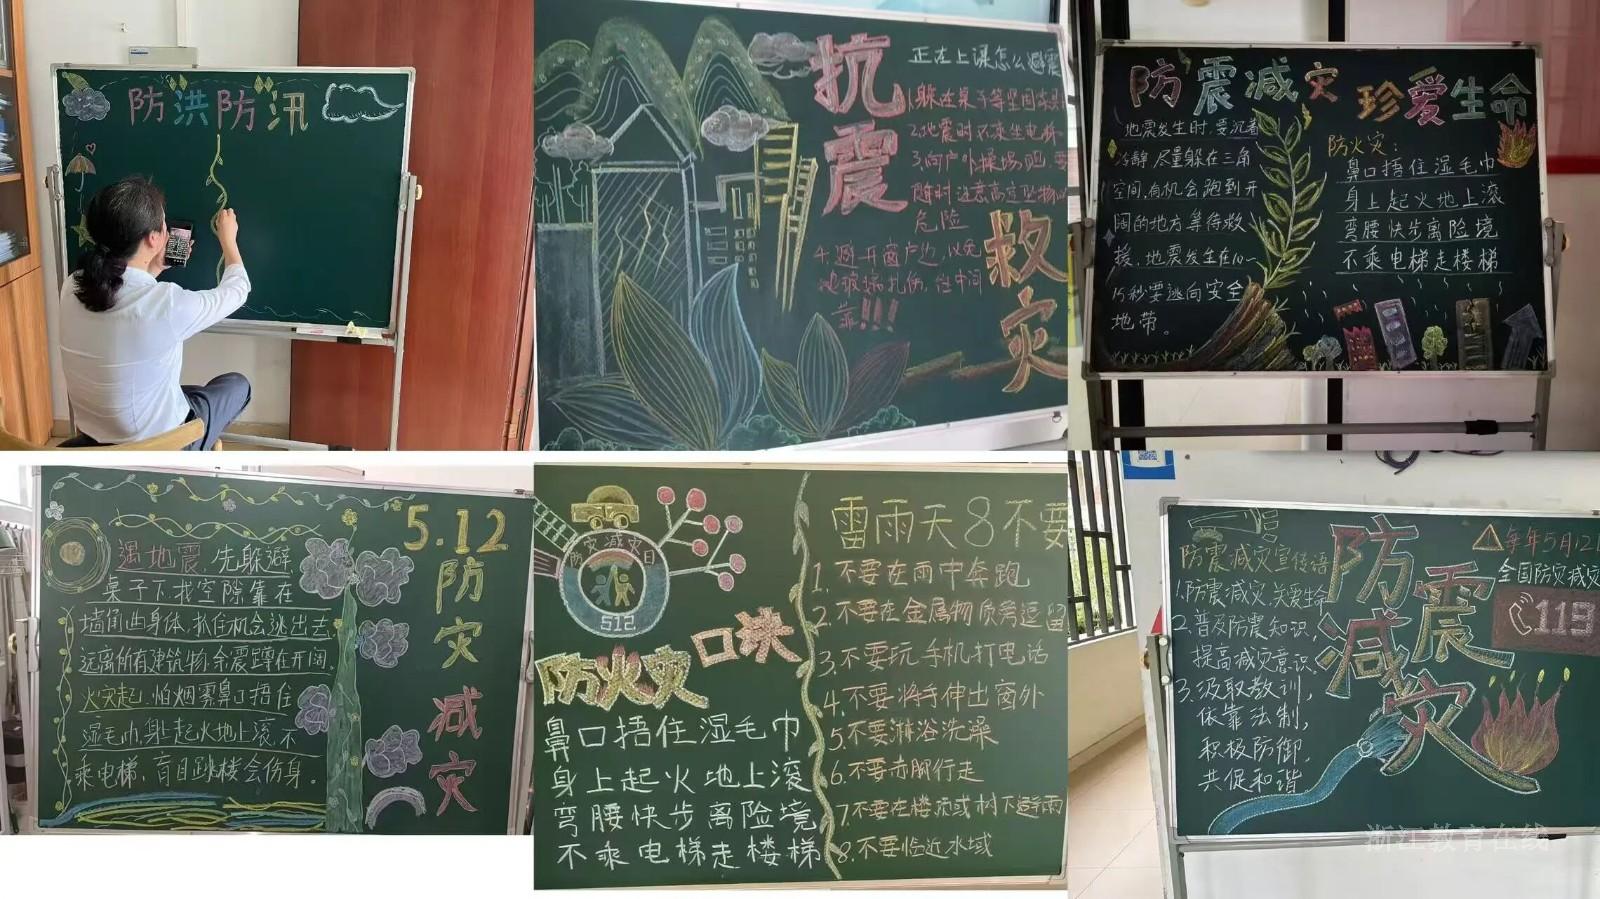 防洪防汛
抗震
救灾
正在上课怎么避震
1.躲在桌子等坚固家具
2.地震时不乘坐电梯
3.向户外操场跑,要
随时注意高空坠物
危险
4.避开窗户边,以免
被玻璃扎伤,往中间
靠!!!
防震减灾 珍爱生命
地震发生时,要沉着
冷静,尽量躲在三角
空间,有机会跑到开
阔的地方等待救
援,地震发生在10~
15秒要逃向安全
地带。
防火灾:
鼻口捂住湿毛巾
身上起火地上滚
弯腰快步离险境
不乘电梯走楼梯
5.12
防灾
减灾
遇地震,先躲避,
桌子下,找空隙,靠在
墙角曲身体,抓住机会逃出去,
远离所有建筑物,余震蹲在开阔,
火灾起,怕烟雾,鼻口捂住
湿毛巾,身上起火地上滚,不
乘电梯,盲目跳楼会伤身。
防灾减灾日
512
防火灾
口诀
鼻口捂住湿毛巾
身上起火地上滚
弯腰快步离险境
不乘电梯走楼梯
雷雨天8不要
1.不要在雨中奔跑
2.不要在金属物质旁逗留
3.不要玩手机打电话
4.不要将手伸出窗外
5.不要淋浴洗澡
6.不要赤脚行走
7.不要在楼顶或树下避雨
8.不要临近水域
防震减灾宣传语
1.防震减灾,关爱生命
2.普及防震知识,
提高减灾意识
3.汲取教训,
依靠法制,
积极防御,
共促和谐
防震
减灾
每年5月12
全国防灾减灾
119
浙江教育在线